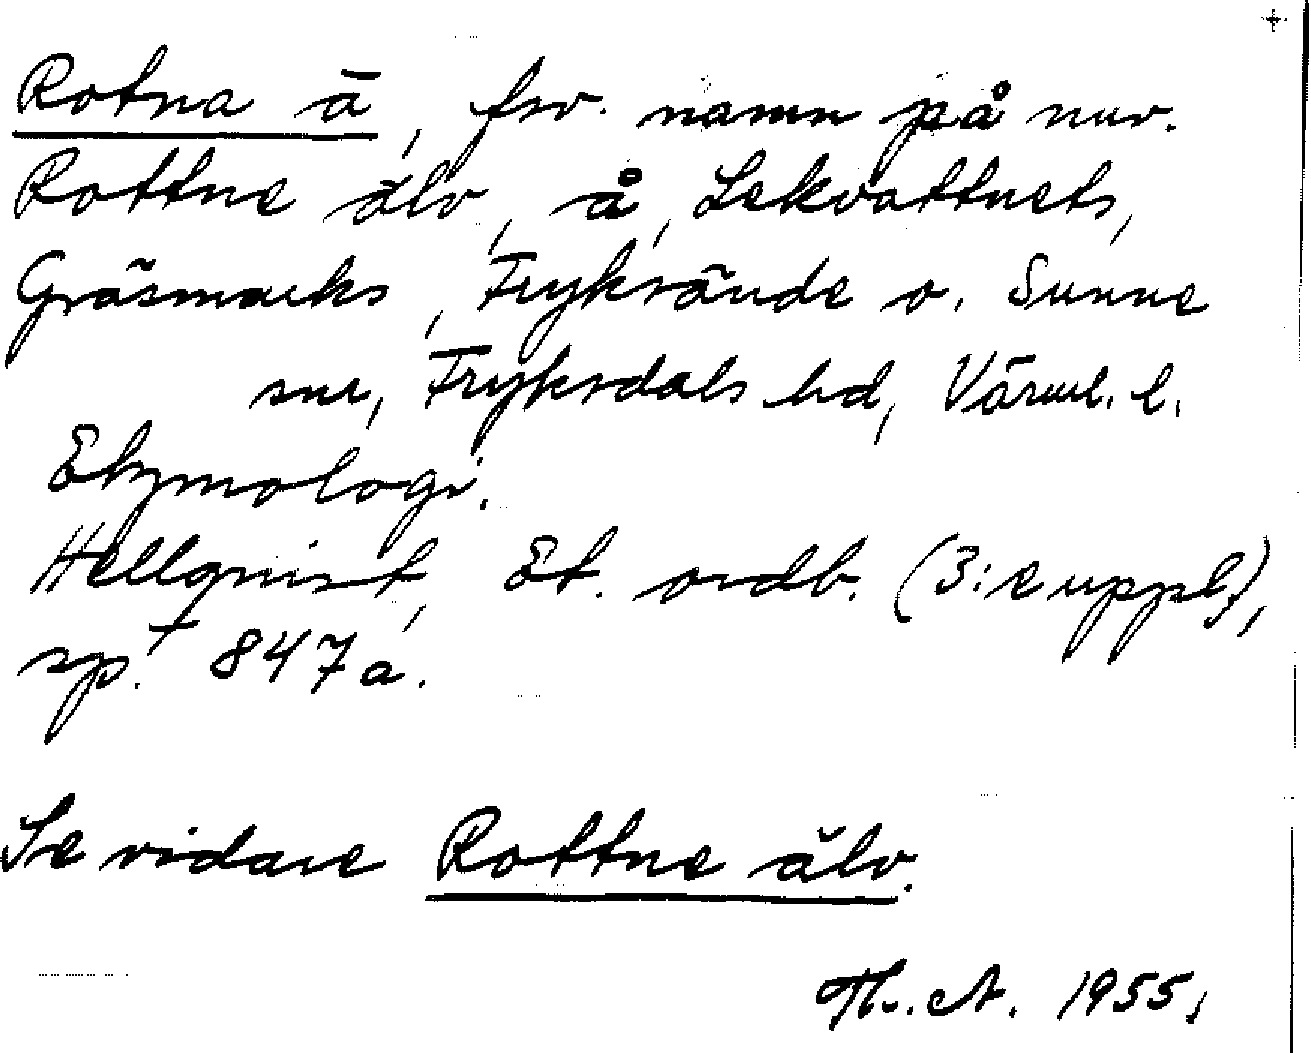 Rotna ā, fsv. namn på nuv.
Rottne älv, å, Lekvattnets,
Gräsmarks, Fryksände o. Sunne
snr, Fryksdals hd, Värml. l.
Etymologi.
Hellquist, Et. ordb. (3:e uppl.),
sp. 847 a.
Se vidare Rottne älv.
Th. A. 1955.